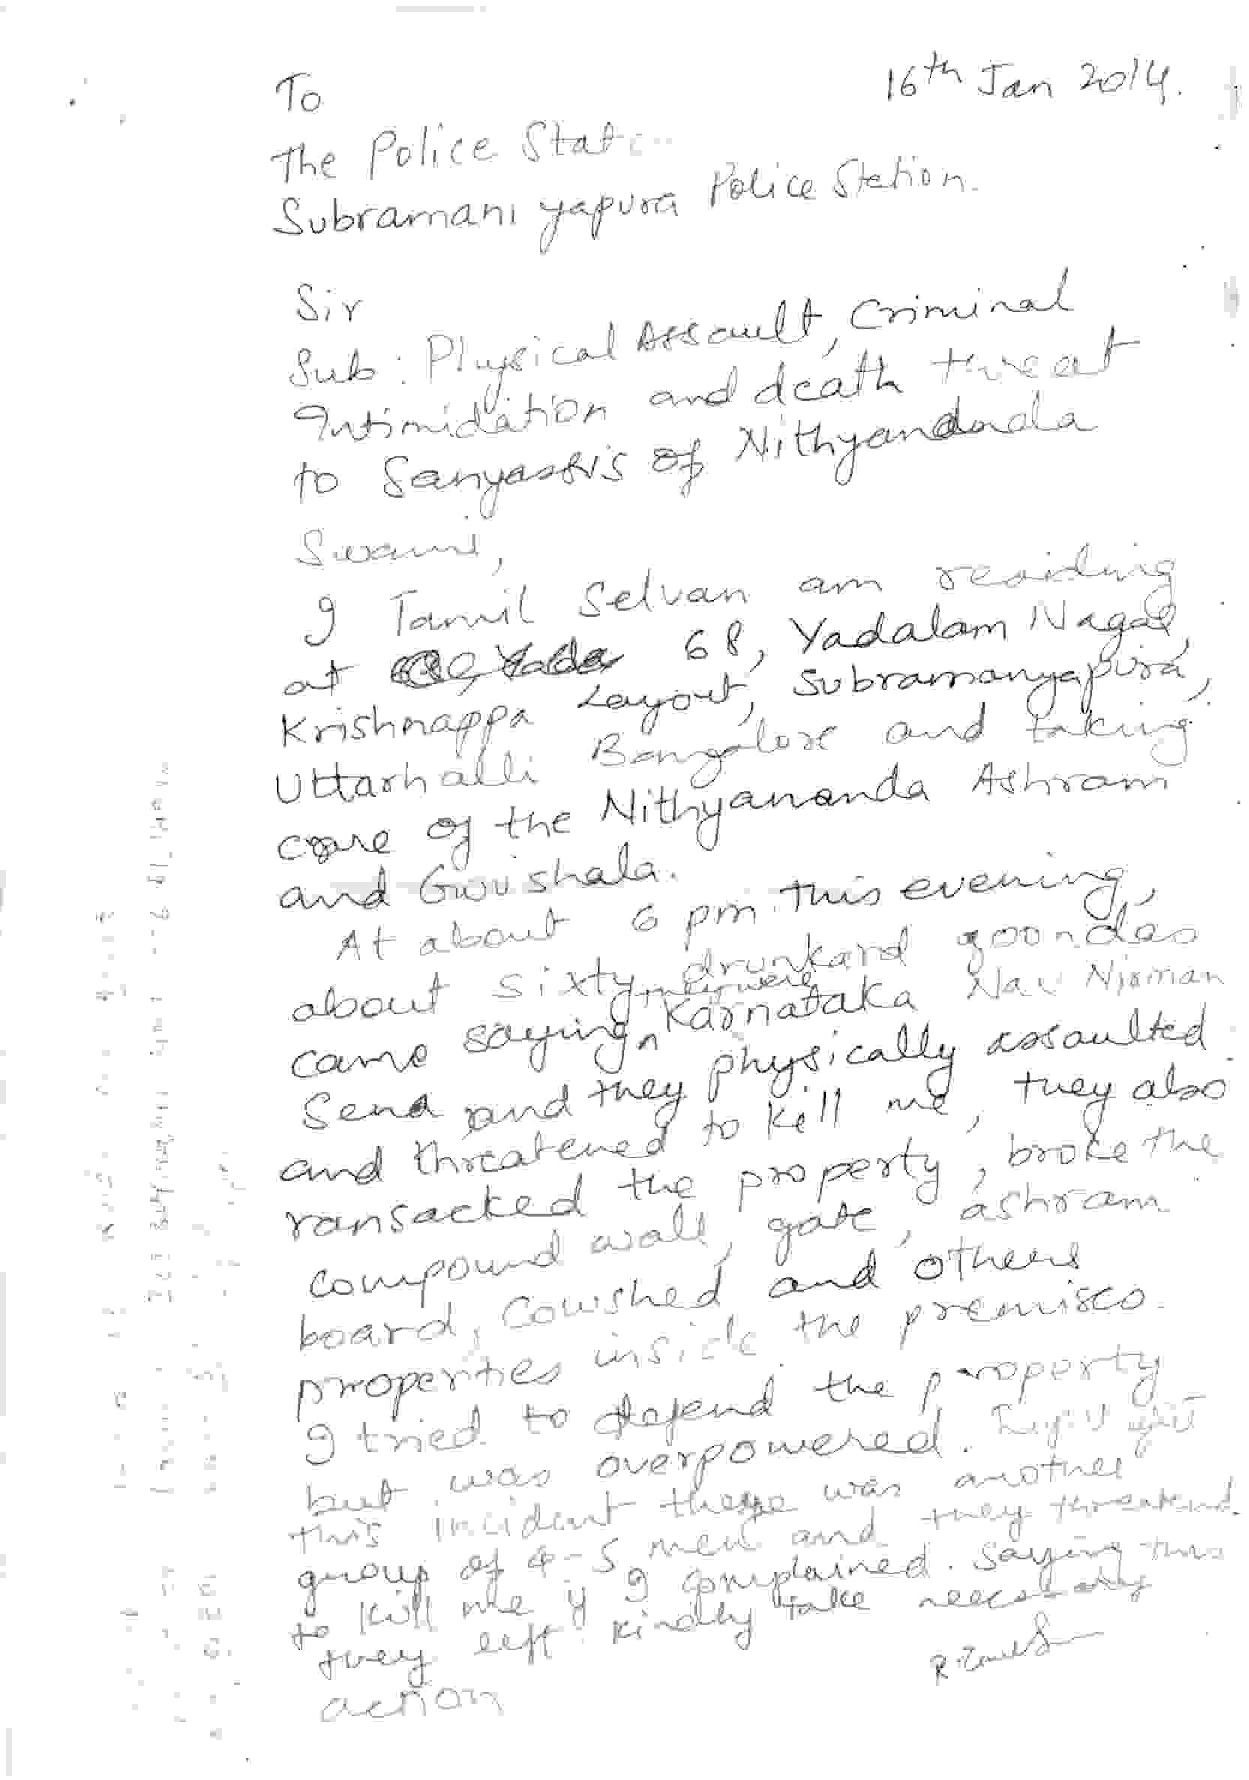 16th Jan 2014.
To
The Police Stat
Subramaniyapura Police Station.
Sir
Sub: Physical Assault, Criminal
Intimidation and death threat
to Sanyasis of Nithyananda
Swami,
I Tamil Selvan am residing
at 68, Yadalam Nagar,
Krishnappa Layout, Subramanyapura,
Uttarhalli Bangalore and taking
care of the Nithyananda Ashram
and Gowshala.
At about 6 pm this evening,
about sixty drunkard goondas
came saying they were Karnataka Nav Nirman
Sena and they physically assaulted
and threatened to kill me, they also
ransacked the property, broke the
compound wall, gate, ashram
board, Cowshed and others
properties inside the premises.
I tried to defend the property
but was overpowered.
this incident there was another
group of 4-5 men and they threatend
to kill me if I complained. Saying this
they left. Kindly take necessary
action